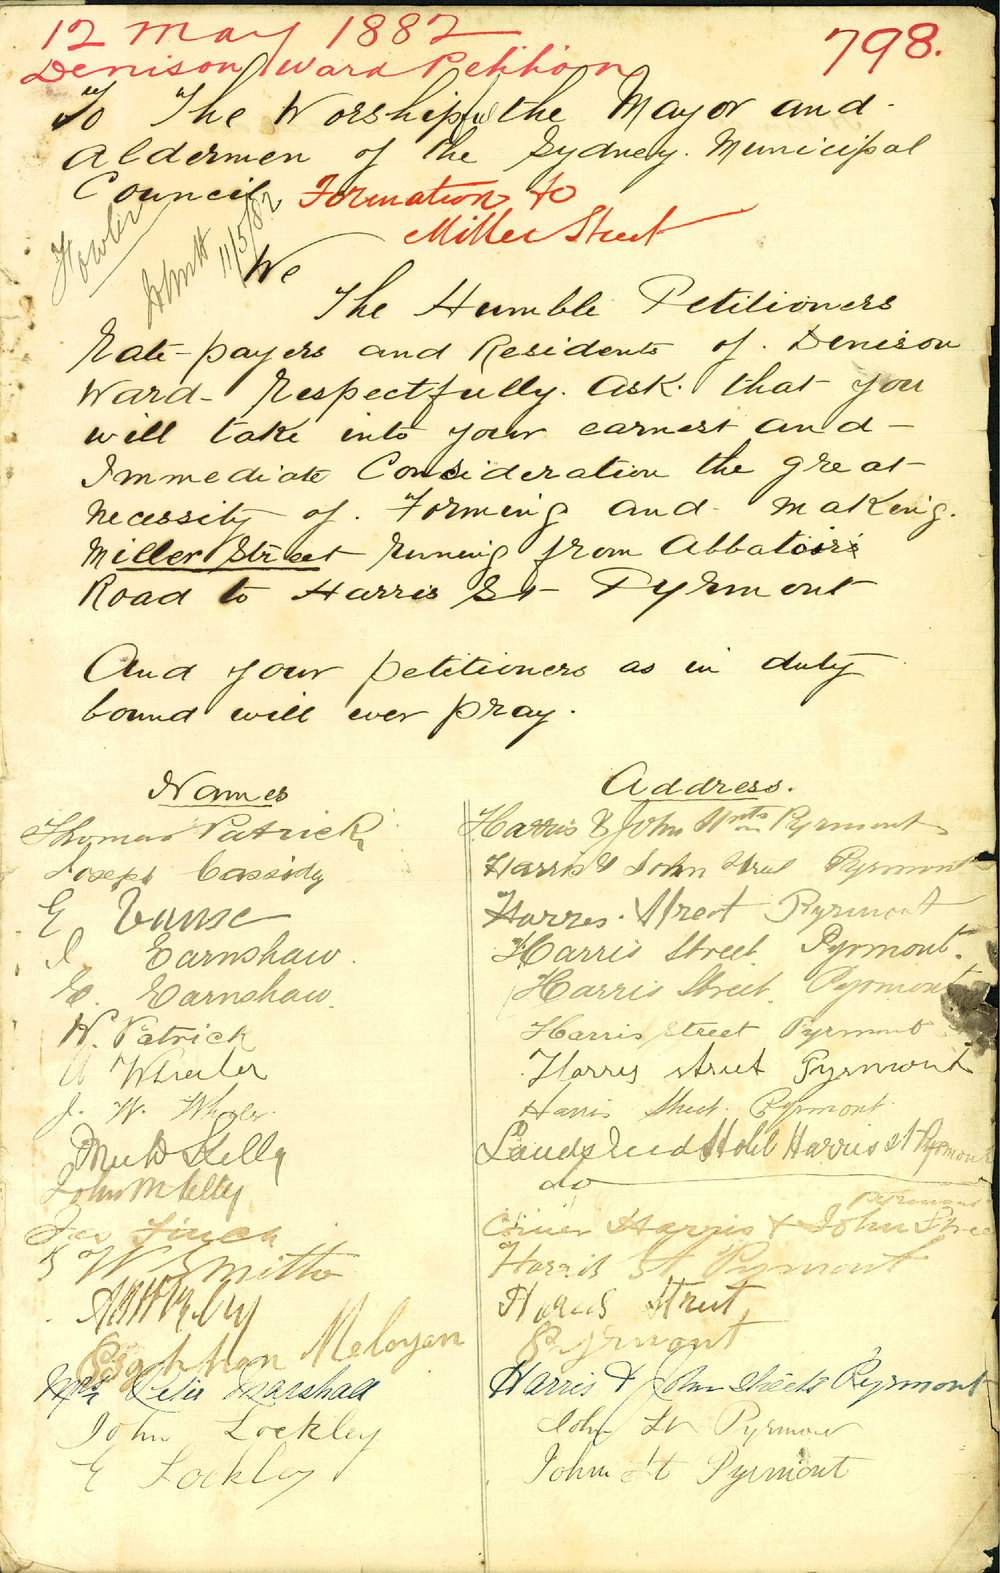 12 May 1882
798.
Denison Ward Petition
To The Worshipful the Mayor and
Aldermen of the Sydney Municipal
Council Formation &c
Miller Street
Fowler
11/5/82
We
The Humble Petitioners
Rate-payers and Residents of Denison
Ward- Respectfully. Ask. that you
will take into your earnest and-
Immediate Consideration the great
Necessity of. Forming and making.
Miller Street runing from Abbatoirs
Road to Harris St Pyrmont
And your petitioners as in duty
bound will ever pray.
Names Address.
Thomas Patrick Harris & John Pyrmont
Joseph Cassidy Harris & John Street Pyrmont
E Harres. Street Pyrmont
J Earnshaw. Harris Street Pyrmont.
E. Earnshaw. Harris Street. Pyrmont
W. Patrick Harris street Pyrmont
A Wheeler Harris street Pyrmont
J. W. Wheeler Harris Street. Pyrmont.
Kelly Hotel Harris st Pyrmont
John Kelly do
Jas Finch Corner Harris & John Street
Pyrmont
W Smith Harris St Pyrmont
Harris Street
Pyrmont
Mrs Marshall Harris & John Streets Pyrmont
John Lockley John St Pyrmont
E Lockley John St Pyrmont